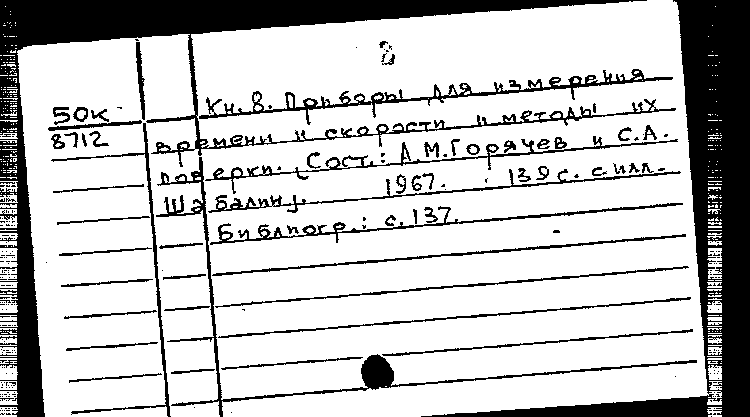 3
50к Кн. 8. Приборы для измерения
8712 времени и скорости и методы их
поверки. [Сост.: А.М.Горячев и С.А.
Шабалин]. 1967. 139 с. с илл.
Библиогр.: с.137.